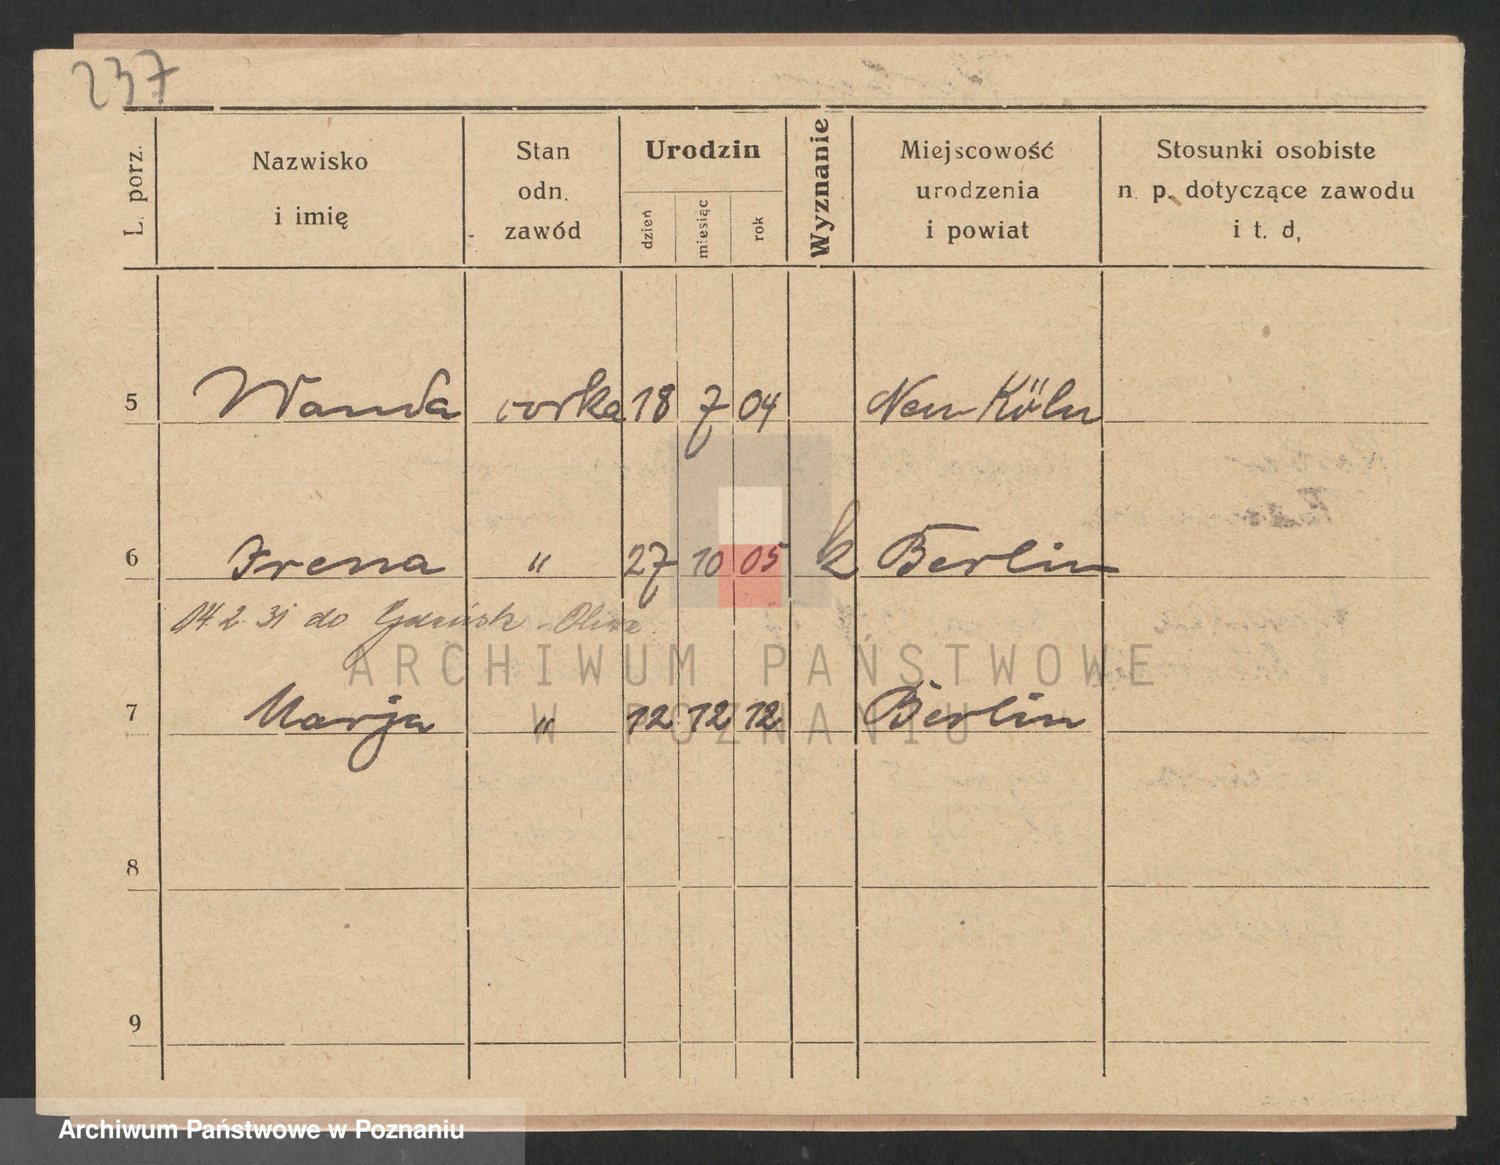 237
L. porz.
Nazwisko
i imię
Stan
odn.
zawód
Urodzin
dzień
miesiąc
rok
Wyznanie
Miejscowość
urodzenia
i powiat
Stosunki osobiste
n. p. dotyczące zawodu
i t. d,
5 Wanda corka 18 7 04 Neu Köln
6 Irena " 27 10 05 k Berlin
14.2.31 do Gdańsk - Oliwa.
7 Marja " 12 12 12 Berlin
8
9
ARCHIWUM PAŃSTWOWE
W POZNANIU
Archiwum Państwowe w Poznaniu